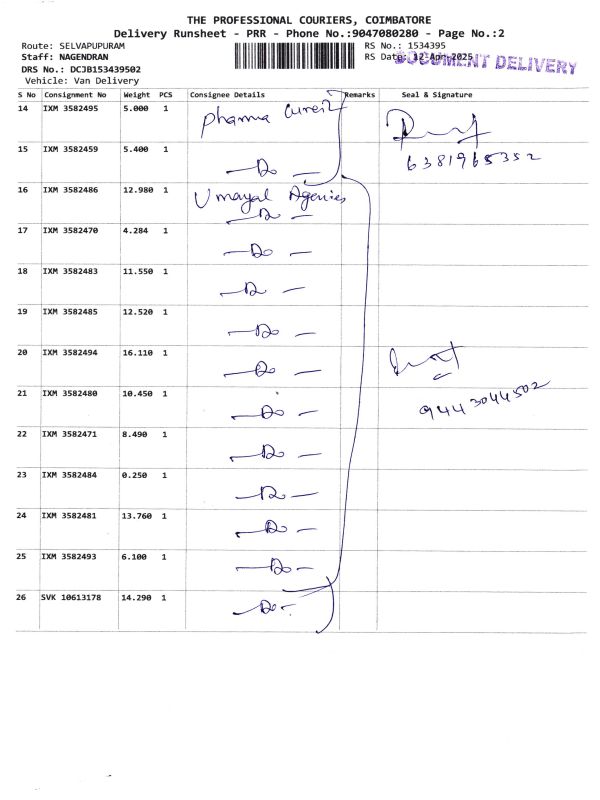 THE PROFESSIONAL COURIERS, COIMBATORE
Delivery Runsheet - PRR - Phone No.:9047080280 - Page No.:2
Route: SELVAPUPURAM RS No.: 1534395
Staff: NAGENDRAN RS Date: 12-Apr-2025 DOCUMENT DELIVERY
DRS No.: DCJB153439502
Vehicle: Van Delivery
S No Consignment No Weight PCS Consignee Details Remarks Seal & Signature
14 IXM 3582495 5.000 1 Pharma
15 IXM 3582459 5.400 1 —Do— 6381965352
16 IXM 3582486 12.980 1 Umayal Agencies
—Do—
17 IXM 3582470 4.284 1 —Do—
18 IXM 3582483 11.550 1 —Do—
19 IXM 3582485 12.520 1 —Do—
20 IXM 3582494 16.110 1 —Do—
21 IXM 3582480 10.450 1 —Do— 9443044502
22 IXM 3582471 8.490 1 —Do—
23 IXM 3582484 0.250 1 —Do—
24 IXM 3582481 13.760 1 —Do—
25 IXM 3582493 6.100 1 —Do—
26 SVK 10613178 14.290 1 —Do—